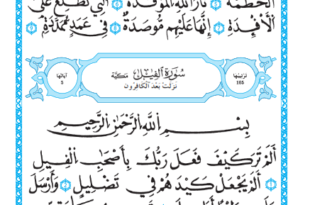 الْحُطَمَةُ ۝ نَارُ اللَّهِ الْمُوقَدَةُ ۝ الَّتِي تَطَّلِعُ عَلَى
الْأَفْئِدَةِ ۝ إِنَّهَا عَلَيْهِم مُّؤْصَدَةٌ ۝ فِي عَمَدٍ مُّمَدَّدَةٍ
ترتيبها ١٠٥ سُورَةُ الْفِيلِ مَكِّيَّة آياتها ٥
نزلت بعد الكافرون
بِسْمِ اللَّهِ الرَّحْمَٰنِ الرَّحِيمِ
أَلَمْ تَرَ كَيْفَ فَعَلَ رَبُّكَ بِأَصْحَابِ الْفِيلِ
أَلَمْ يَجْعَلْ كَيْدَهُمْ فِي تَضْلِيلٍ ۝ وَأَرْسَلَ